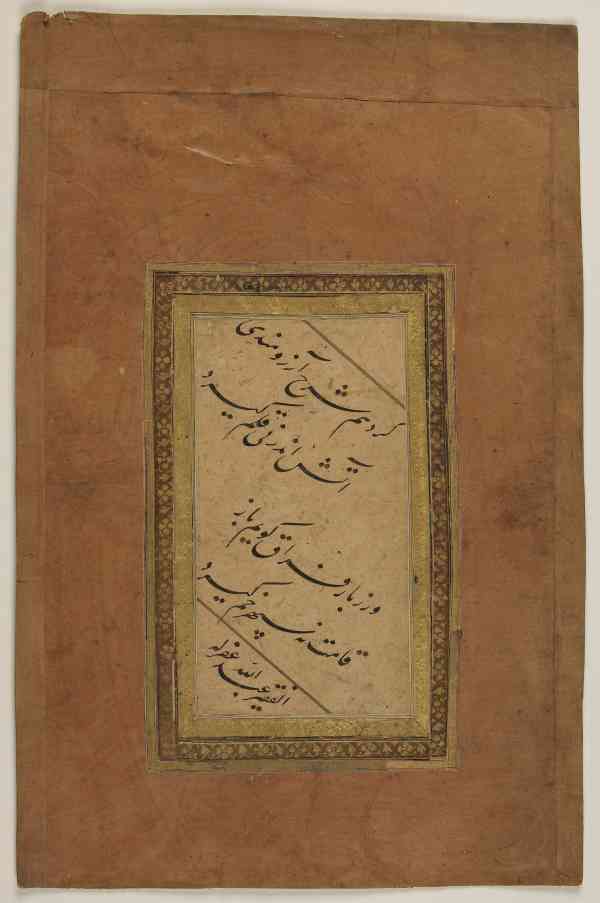 گر دهم شرح آرزومندی
آتش اندر نی قلم گیرد
ور ز بار فراق گویم باز
قامت نه سپهر خم گیرد
الفقیر عبد الله غفر له